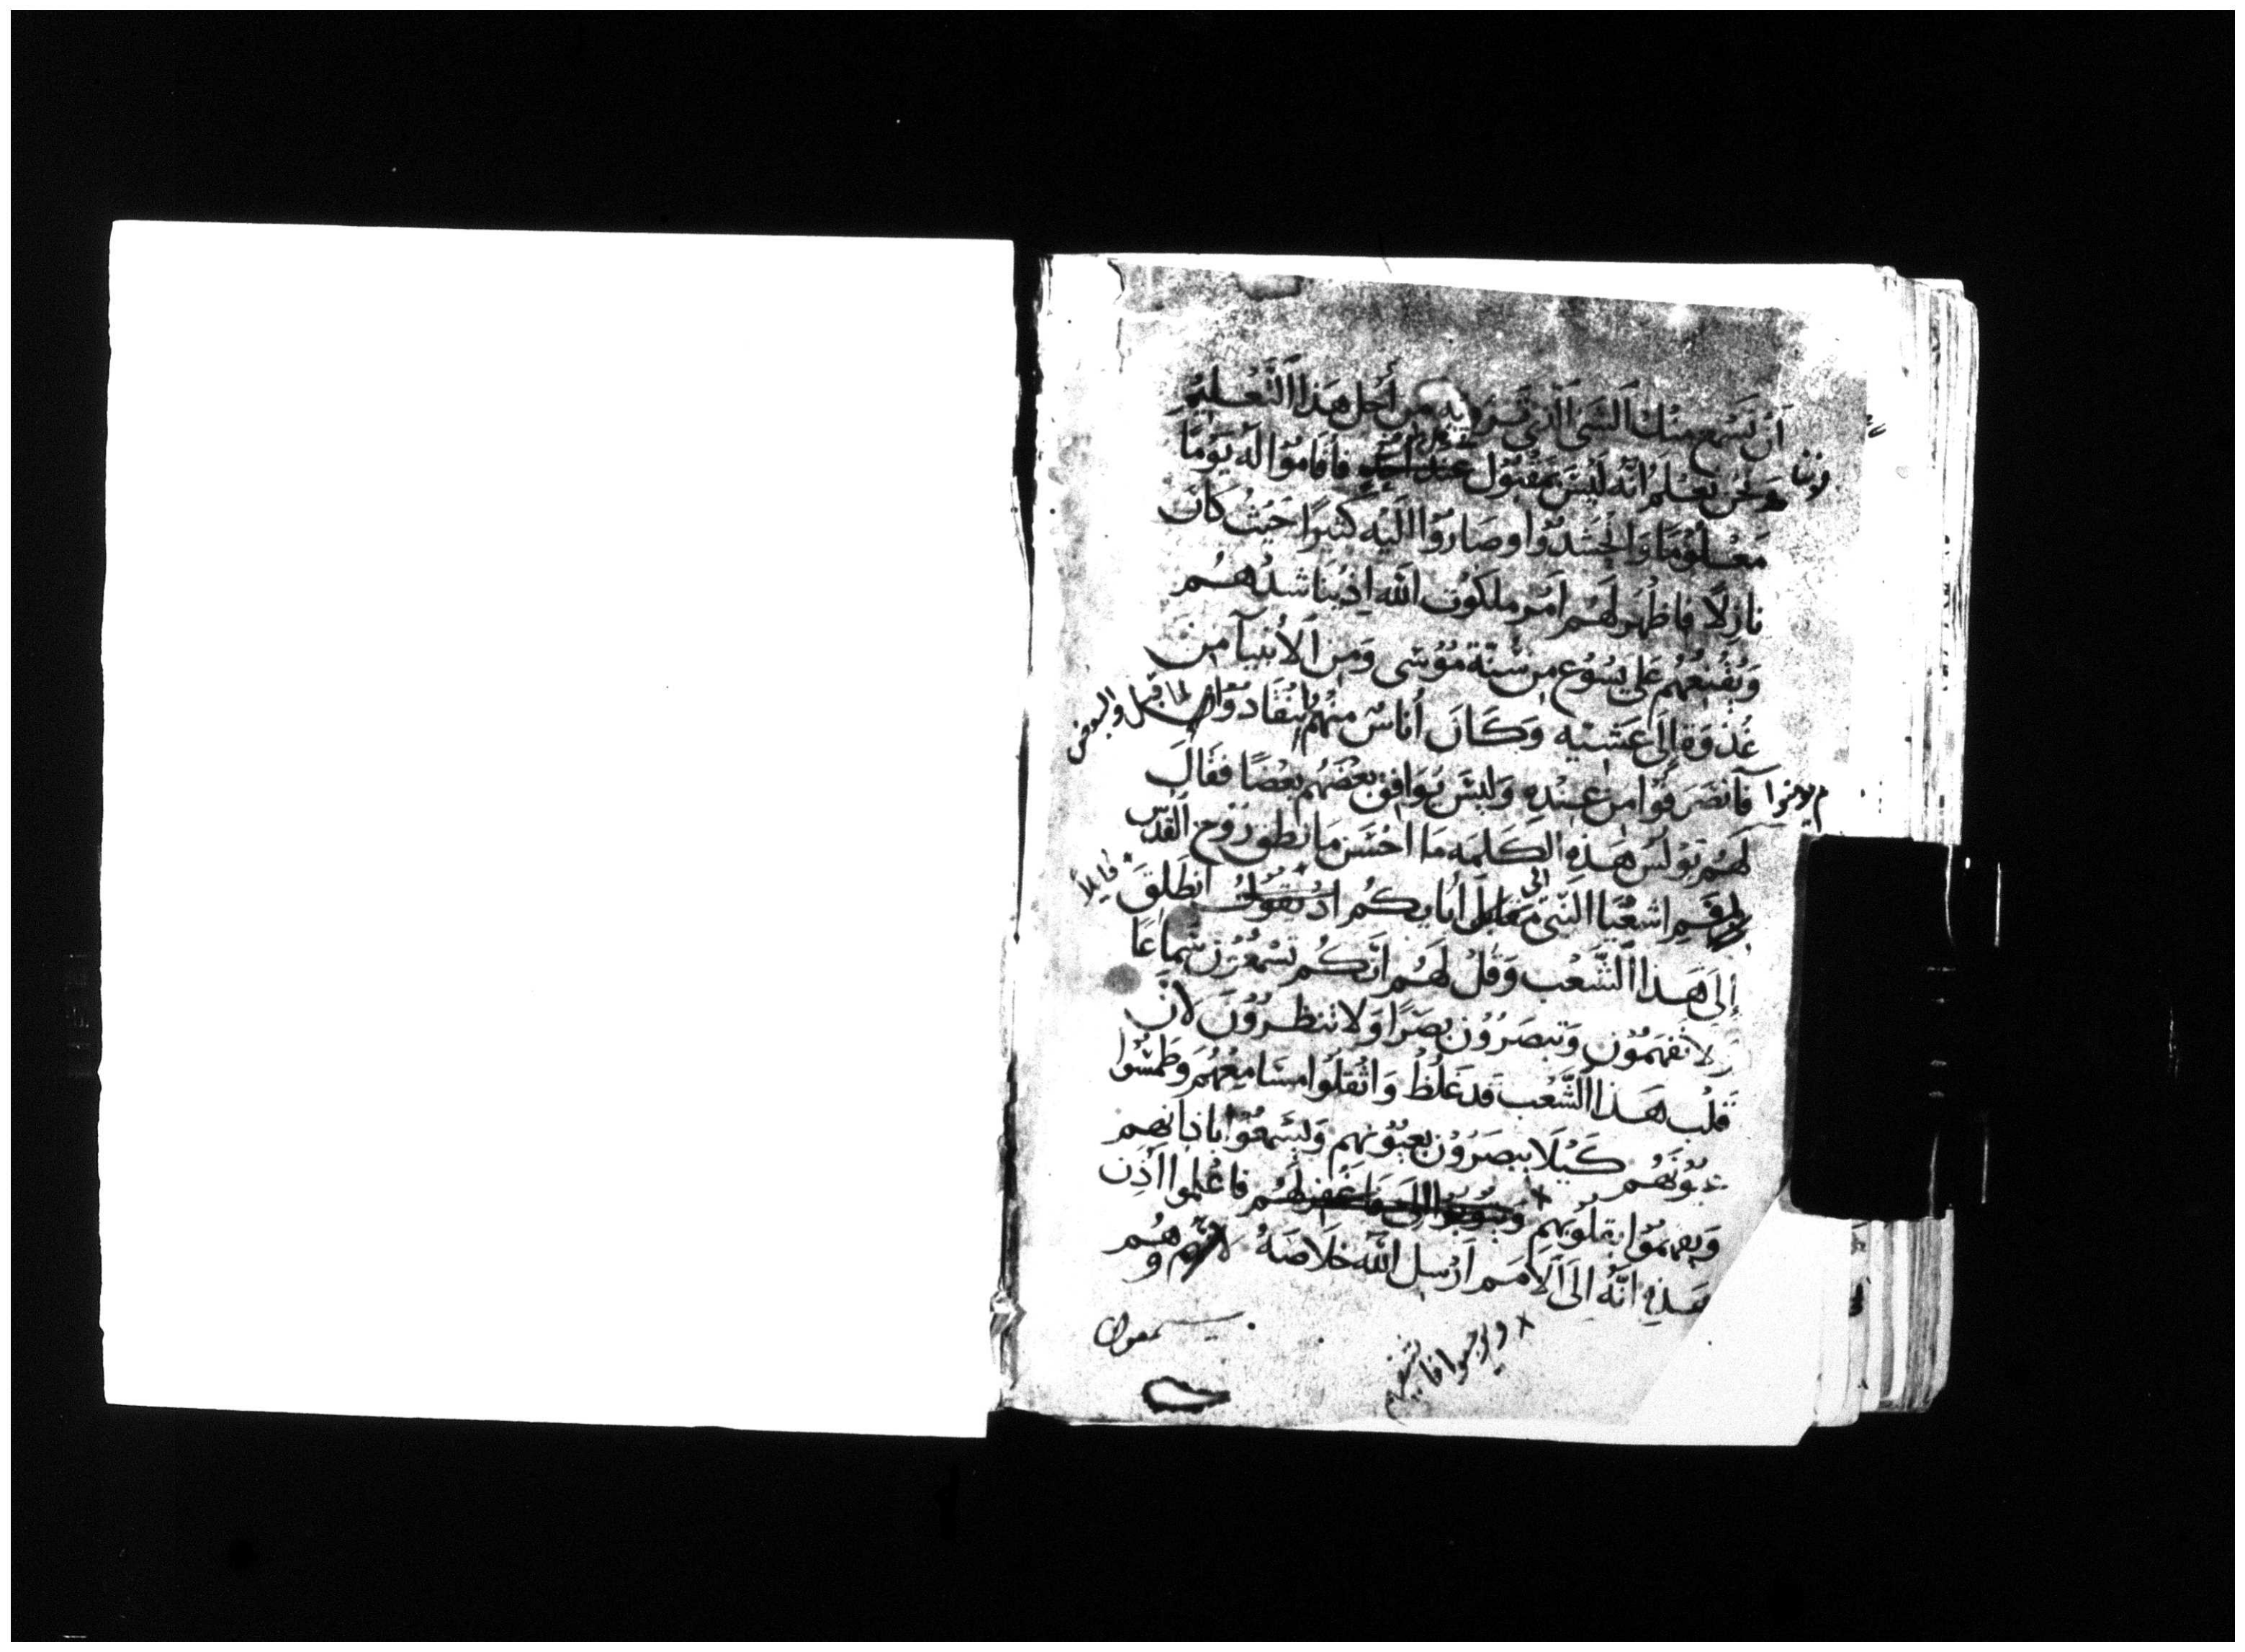 اَنْ نَسْمع مِنْكَ الشَى الَّذي تَرَ به مِن أَجْل هَذا التَعْلِيمْ
وَنَحْن نَعْلَمُ اَنَّهُ لَيْسَ بمَقْبُوْل عِنْدَ اَحَدٍ فأقامُوْا لَه يَوْمًا
مَعْلُوْمًا وَاحْتَشَدُوْا وصَارُوْا اِلَيْه كَثيرًا حَيْثُ كَانَ
نازِلًا فاظْهَر لَهُم اَمْرَ مَلكوُت الله اِذ يُنَاشدُهُم
وَيُقْنِعُهُم عَلى يَسُوْع مِن سُنَّة مُوْسَى وَمِن الأنبيآ مِن
غُدْوَة اِلَى عَشيّه وَكَانَ أُناسٌ مِنْهُم يَنْقَادُوْا لما قيل والبعض
لم يومنوا فَأنصَرَفُوْا مِن عِنْدِهِ وَلَيْسَ يُوَافِق بَعْضُهُم بَعْضًا فَقَالَ
لَهُم بُوْلُسْ هَذِهِ الكَلِمَه مَا اَحْسَن مَا نَطَق رُوْح الْقُدُس
فم اِشَعْيَا النَّبي الى ابايكُم اِذْ يَقُوْلُ قايلاً اَنطَلِقَ
إِلَى هَذا اَلشَّعْب وَقُلْ لَهُم اِنَّكُم تَسْمَعُوْن سَمَاعًا
ولا تَفهَمُوْن وَتبصَرُوْن بَصَرًا وَلا تَنظُرُوْنَ لأنَّ
قَلْب هَذا اَلشَّعْب قَد غَلُظَ وَاثْقَلُوا مَسَامِعَهُم وَطَمسُّوا
عيُونَهُم كَيْلَا يبصَرُوْن بعيُوْنهم وَيَسْمَعُوْا باذانهم
وَيفهَمُوْا بقلُوْبهم وَيَتُوْبُوْا اِلَيَّ فَاغفِرلَهُم فاعْلمُوا اذِن
هَذِهِ اَنَّهُ اِلَى اَلأمَم اَرْسِل الله خَلَاصَهُ لانهم وهُم
يسمعون
× ويرجعوا فاشفيهم